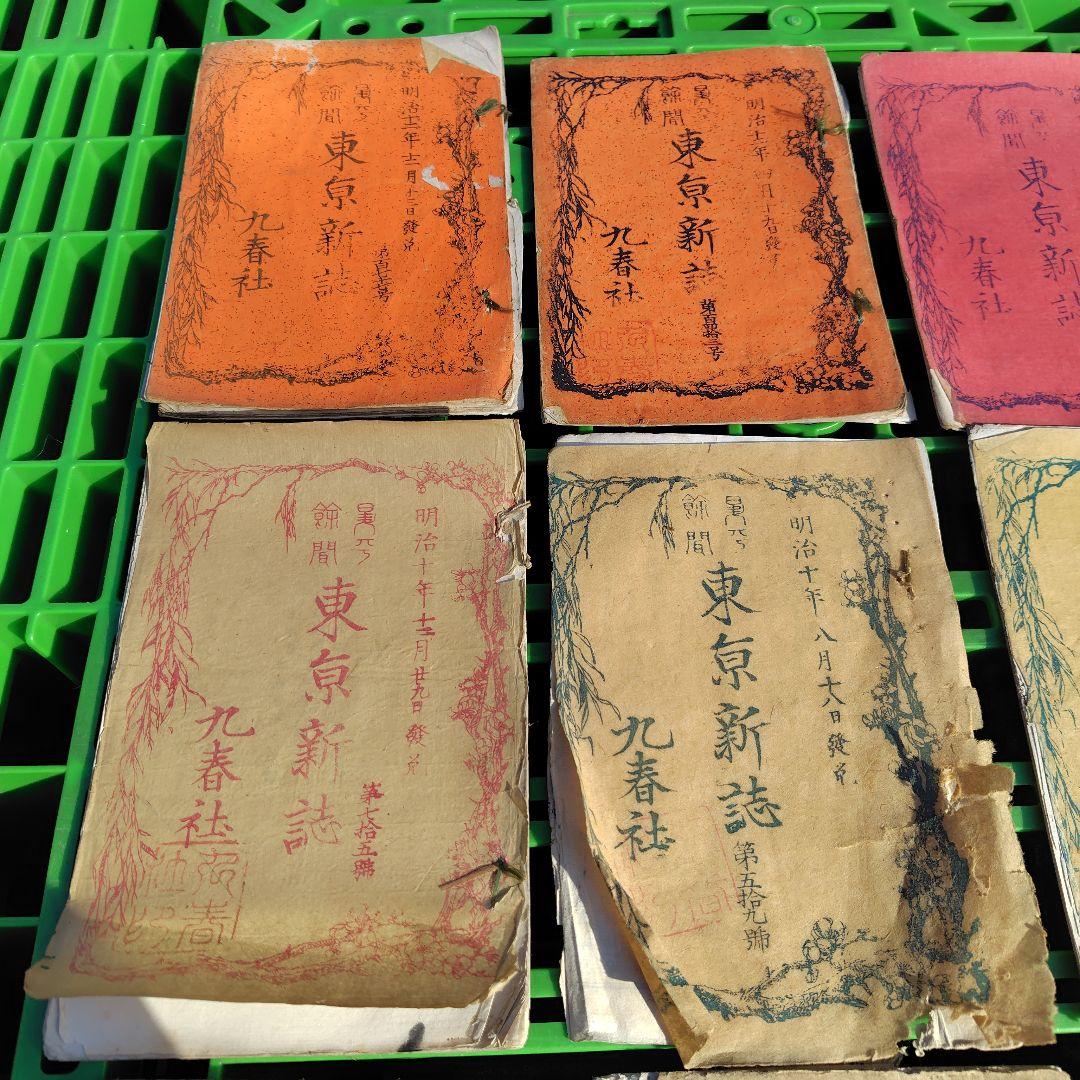 明治十二年十二月十三日發兌
餘聞
東京新誌
九春社
明治十二年四月十九日發兌
餘聞
東京新誌
第百四拾三号
九春社
餘聞
東京新誌
九春社
明治十年十二月廿九日發兌
餘聞
東京新誌
第七拾五號
九春社
明治十年八月十八日發兌
餘聞
東京新誌
第五拾九號
九春社